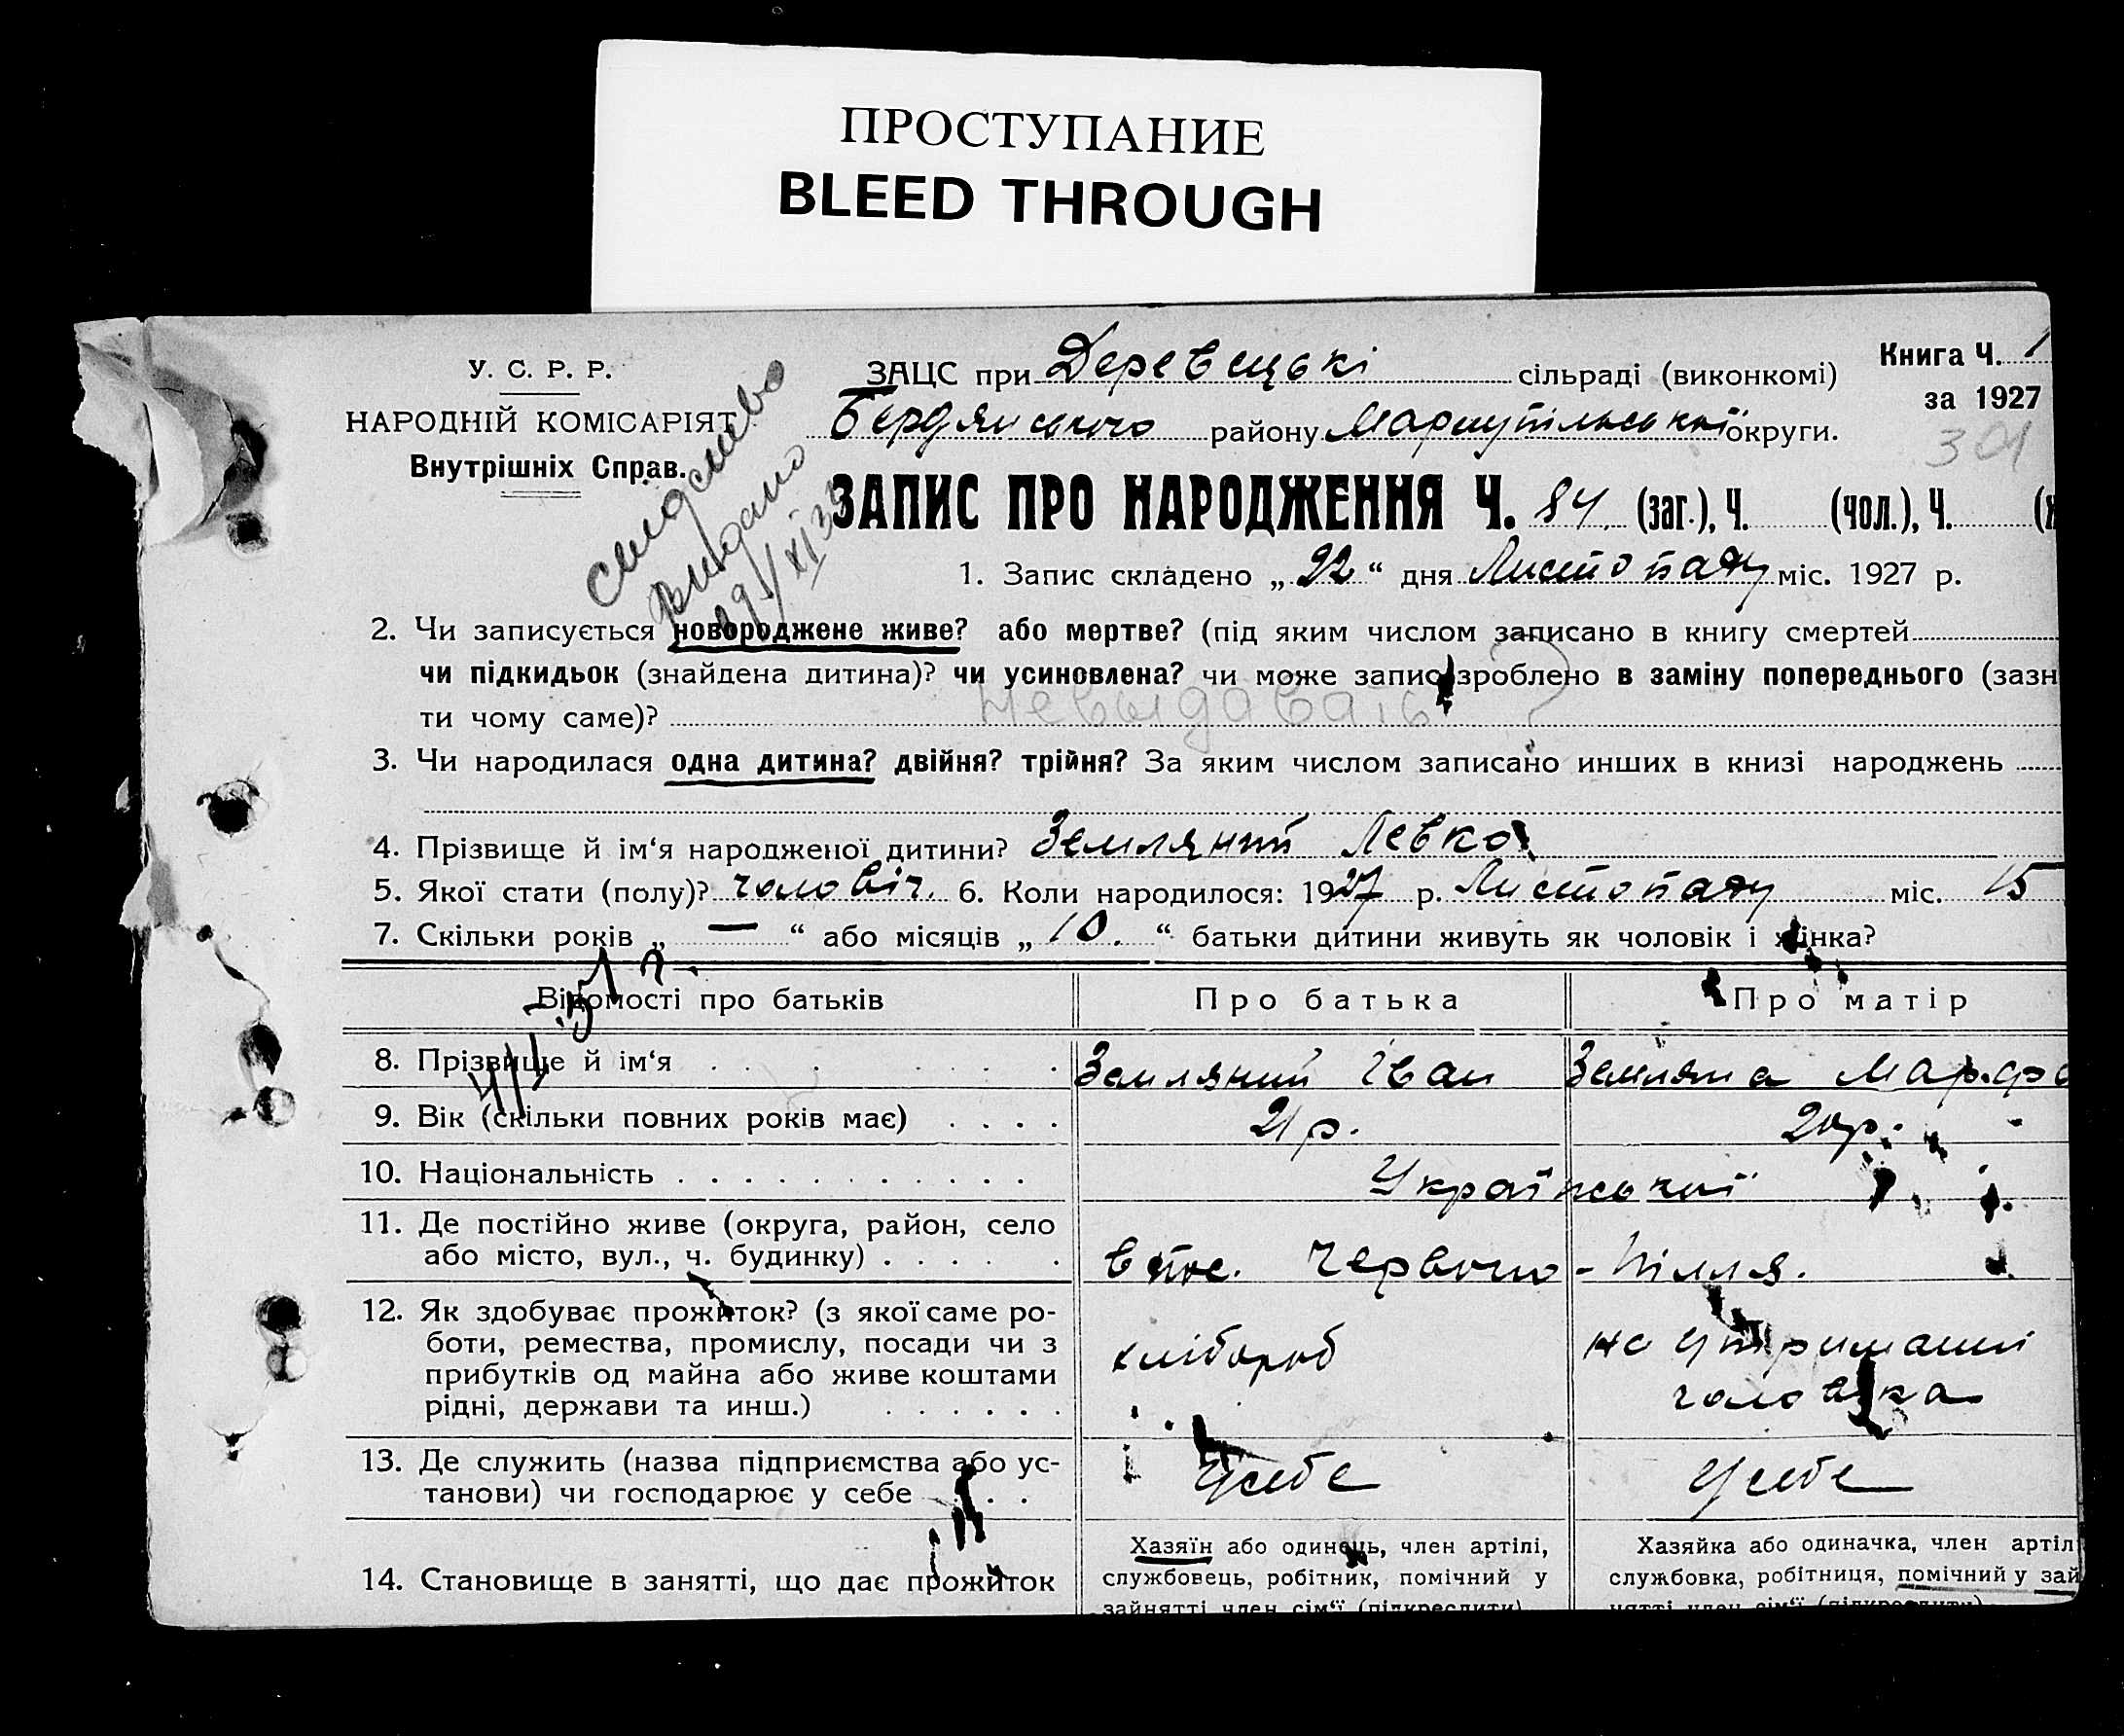 ПРОСТУПАНИЕ
BLEED THROUGH
У. С. Р. Р.
НАРОДНІЙ КОМІСАРІЯТ
Внутрішніх Справ.
ЗАЦС при Деревецькі сільраді (виконкомі)
Книга Ч. 1
за 1927
Бердянського району Маріупільської округи.
301
видано
ЗАПИС ПРО НАРОДЖЕННЯ Ч. 84. (заг.), Ч. (чол.), Ч.
1. Запис складено „ 22 “ дня Листопаду міс. 1927 р.
2. Чи записується новороджене живе? або мертве? (під яким числом записано в книгу смертей
чи підкидьок (знайдена дитина)? чи усиновлена? чи може запис зроблено в заміну попереднього (зазн
ти чому саме)? Невыдавать ?
3. Чи народилася одна дитина? двійня? трійня? За яким числом записано инших в книзі народжень
4. Прізвище й ім‘я народженої дитини? Земляний Левко
5. Якої стати (полу)? чоловіч. 6. Коли народилося: 1927 р. Листопаду міс. 15
7. Скільки років „ — “ або місяців „ 10. “ батьки дитини живуть як чоловік і жінка?
Відомості про батьків Про батька Про матір
8. Прізвище й ім‘я Земляний Іван Земляна Марфа
9. Вік (скільки повних років має) 21 р. 20 р.
10. Національність Української
11. Де постійно живе (округа, район, село
або місто, вул., ч. будинку) в пос. Червоно-Пілля.
12. Як здобуває прожиток? (з якої саме ро-
боти, ремества, промислу, посади чи з
прибутків од майна або живе коштами
рідні, держави та инш.)
хлібороб
на утриманні
чоловіка
13. Де служить (назва підприємства або ус-
танови) чи господарює у себе
у себе
у себе
14. Становище в занятті, що дає прожиток
Хазяїн або одинець, член артілі,
службовець, робітник, помічний у
зайнятті член сім‘ї (підкреслити)
Хазяйка або одиначка, член артіл
службовка, робітниця, помічний у зай
нятті член сім‘ї (підкреслити)